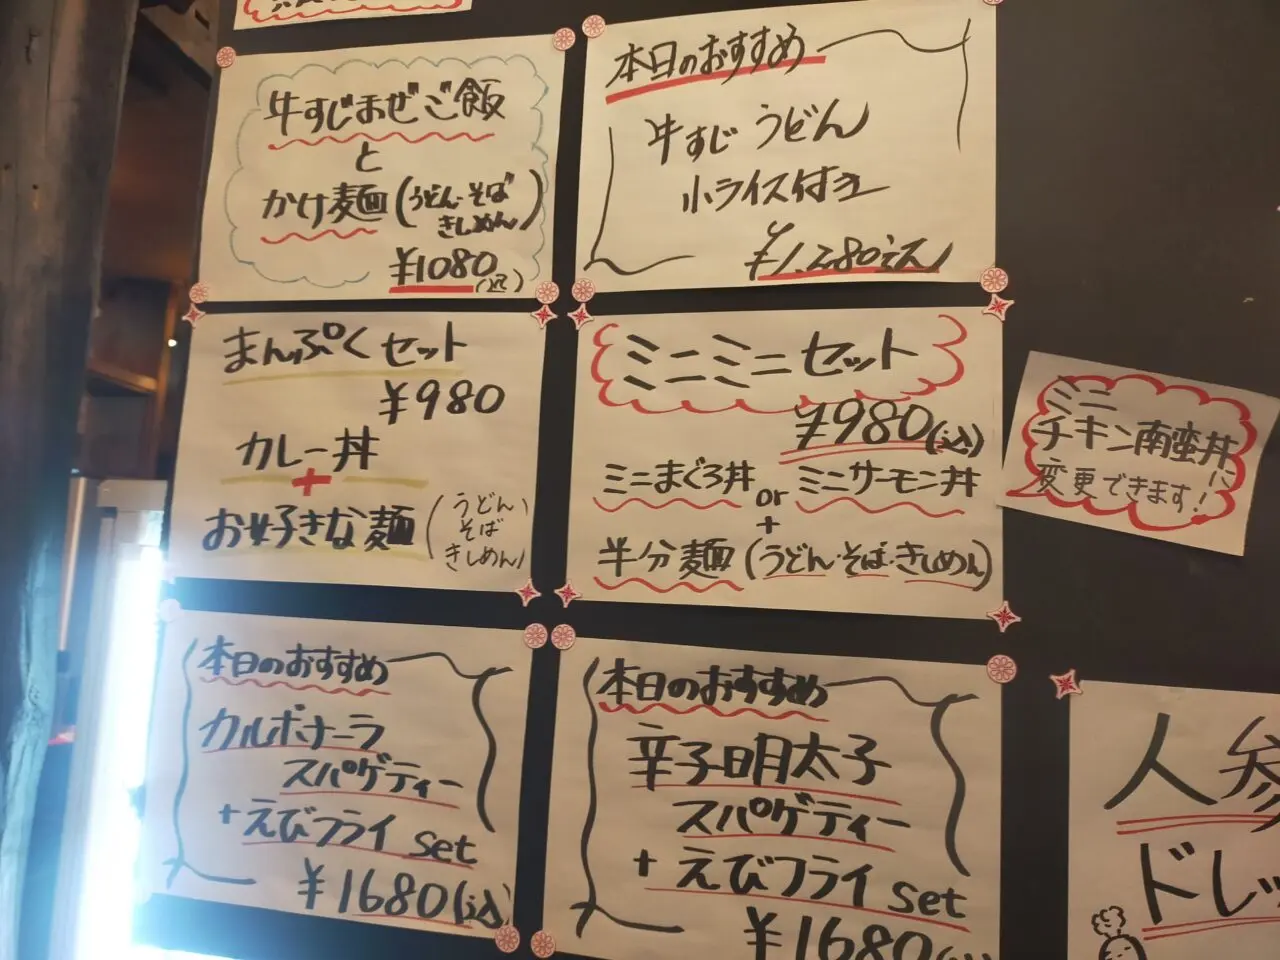 牛すじまぜご飯
と
かけ麺(うどん・そば
きしめん)
¥1080(込)
本日のおすすめ
牛すじうどん
小ライス付き
¥1,280込
まんぷくセット
¥980
カレー丼
+
お好きな麺(うどん
そば
きしめん)
ミニミニセット
¥980(込)
ミニまぐろ丼 or ミニサーモン丼
+
半分麺(うどん・そば・きしめん)
ミニ
チキン南蛮丼に
変更できます!
本日のおすすめ
カルボナーラ
スパゲティー
+えびフライset
¥1680(込)
本日のおすすめ
辛子明太子
スパゲティー
+えびフライset
¥1680
人参
ドレッ